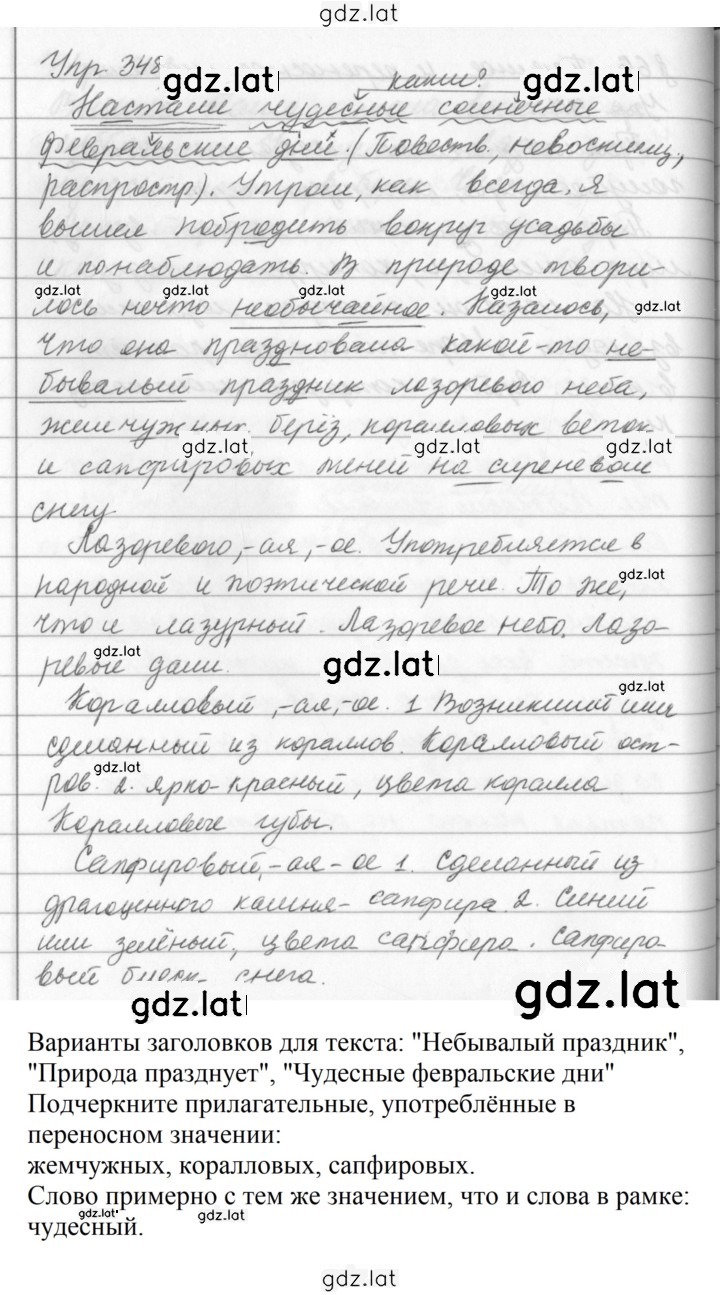 gdz.lat
Упр 348 gdz.lat
какие?
Настали чудесные солнечные
февральские дни. (Повеств, невосклиц,
распростр). Утром, как всегда, я
вышел побродить вокруг усадьбы
и понаблюдать. В природе твори-
gdz.lat gdz.lat gdz.lat gdz.lat
лось нечто необычайное. Казалось,
что она праздновала какой-то не-
бывалый праздник лазоревого неба,
берёз, коралловых веток
gdz.lat gdz.lat
и сапфировых теней на сиреневом
снегу
Лазоревого,-ая,-ое. Употребляется в
народной и поэтической речи. То же, gdz.lat
что и лазурный. Лазоревое небо. Лазо-
gdz.lat gdz.lat
ревые дали.
gdz.lat
Коралловый,-ая,-ое. 1 Возникший или
сделанный из кораллов. Коралловый ост-
gdz.lat
ров. 2. ярко-красный, цвета коралла
Коралловые губы.
Сапфировый,-ая-ое 1. Сделанный из
драгоценного камня- сапфира. 2. Синий
или зелёный, цвета сапфира. Сапфиро-
вый снега.
gdz.lat gdz.lat
Варианты заголовков для текста: "Небывалый праздник",
"Природа празднует", "Чудесные февральские дни"
Подчеркните прилагательные, употреблённые в
переносном значении:
жемчужных, коралловых, сапфировых.
Слово примерно с тем же значением, что и слова в рамке:
gdz.lat gdz.lat
чудесный.
gdz.lat